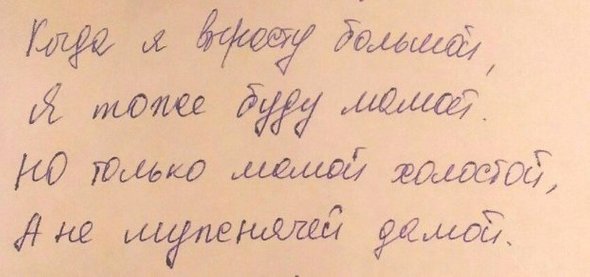 Когда я вырасту большой,
Я тоже буду мамой.
НО только мамой холостой,
А не мужнячей дамой.